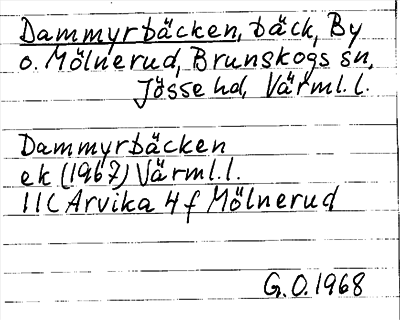 Dammyrbäcken, bäck, By
o. Mölnerud, Brunskogs sn,
Jösse hd, Värml. l.
Dammyrbäcken
ek (1967) Värml. l.
11C Arvika 4 f Mölnerud
G. O. 1968